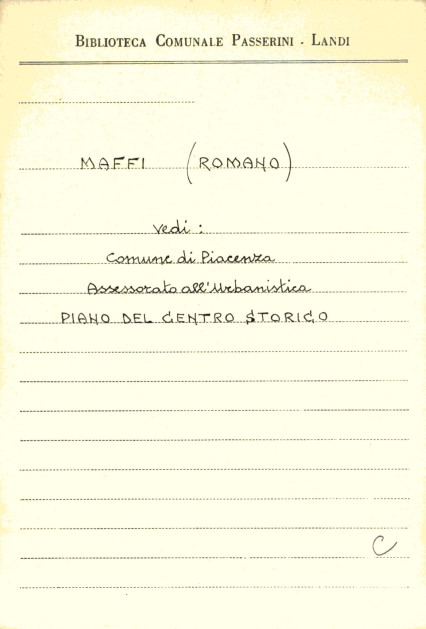 BIBLIOTECA COMUNALE PASSERINI - LANDI
MAFFI (ROMANO)
vedi :
Comune di Piacenza
Assessorato all'Urbanistica
PIANO DEL CENTRO STORICO
C